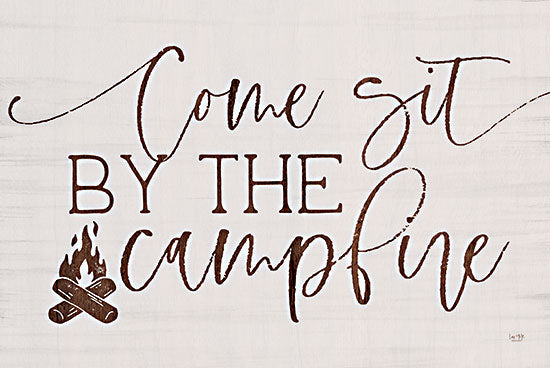 Come sit
BY THE
campfire